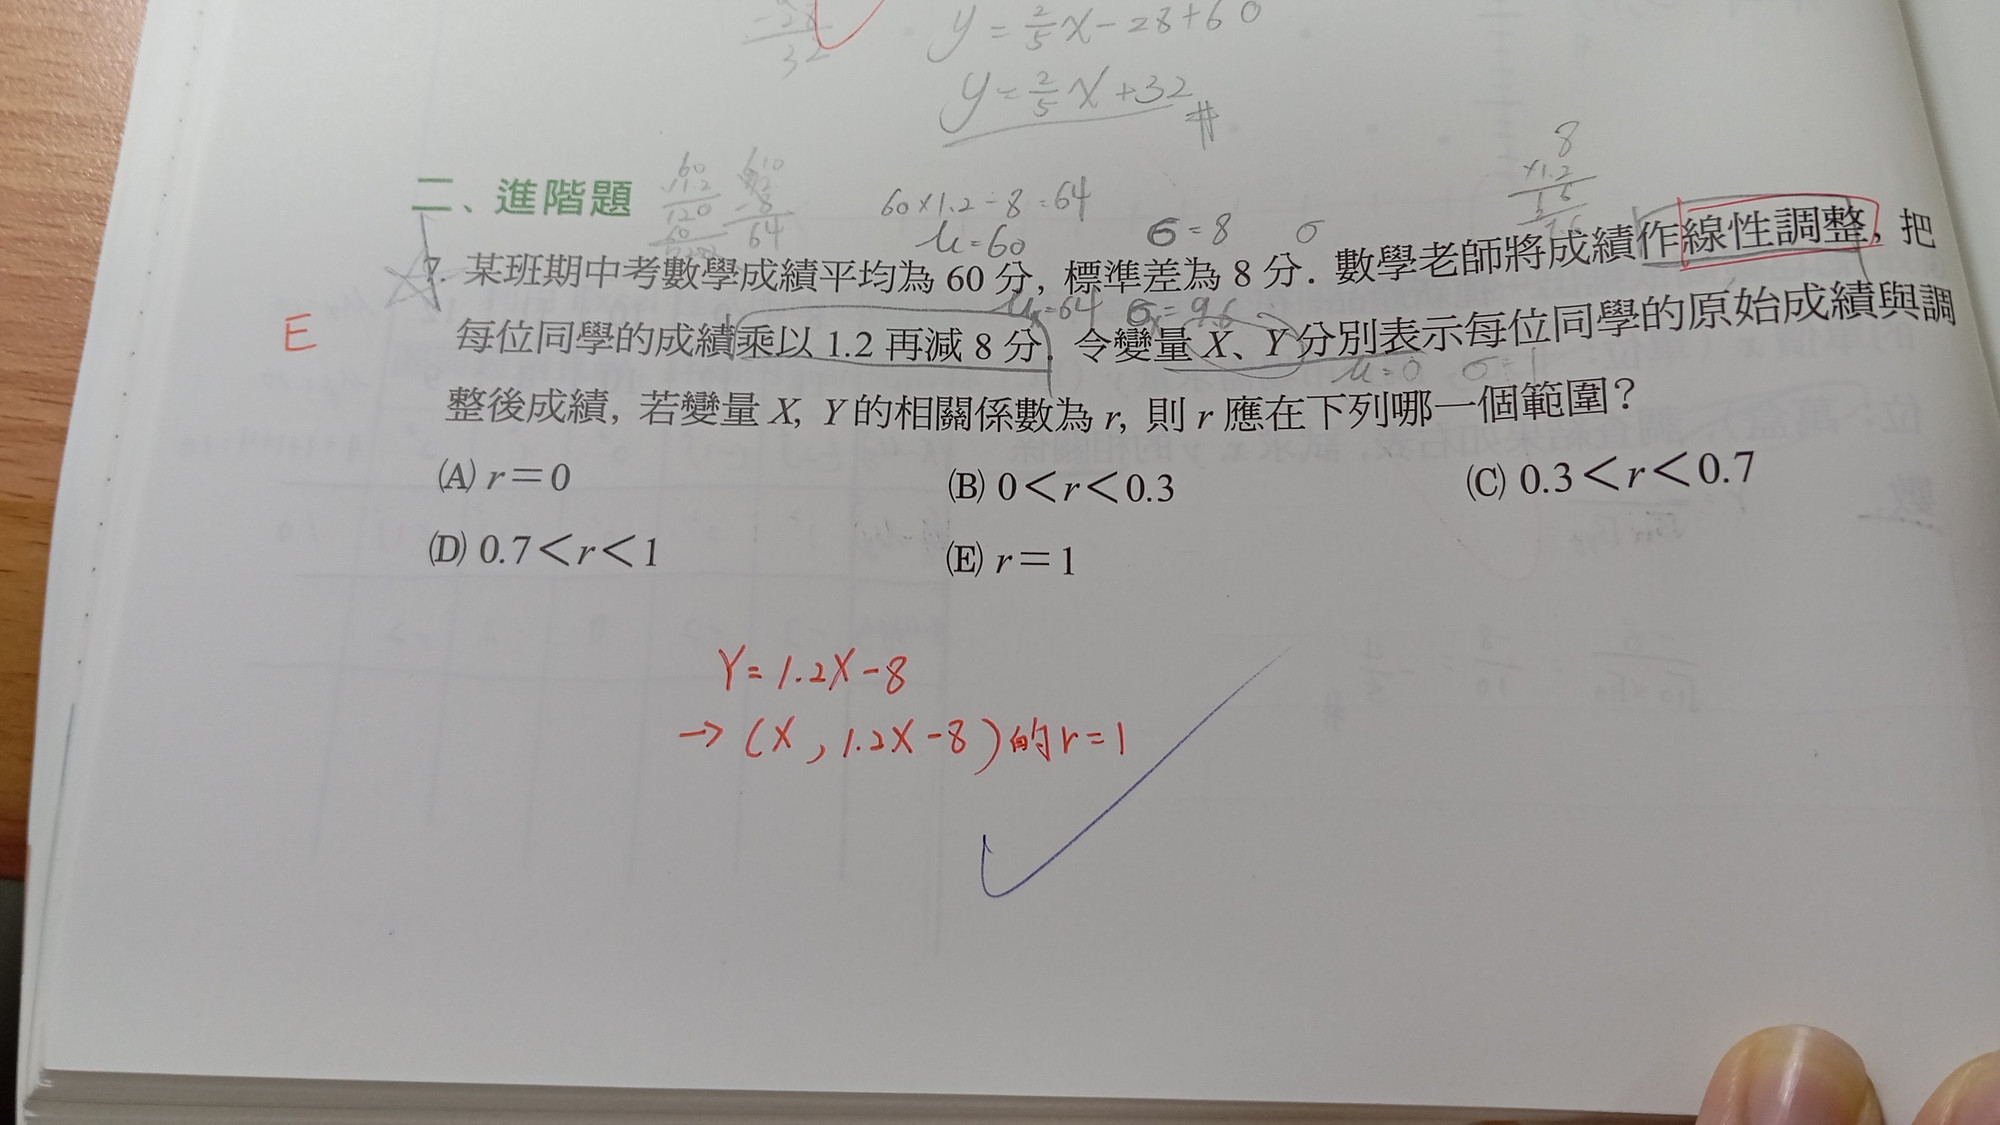 32
y = 2/5 x - 28 + 60
y = 2/5 x + 32 #
二、進階題
60 × 1.2 - 8 = 64
μ = 60
σ = 8 σ
8
×1.2
7. 某班期中考數學成績平均為 60 分, 標準差為 8 分. 數學老師將成績作線性調整, 把
=64 = 9.6
每位同學的成績乘以 1.2 再減 8 分. 令變量 X、Y 分別表示每位同學的原始成績與調
E
μ = 0 σ = 1
整後成績, 若變量 X, Y 的相關係數為 r, 則 r 應在下列哪一個範圍?
(A) r=0 (B) 0<r<0.3 (C) 0.3<r<0.7
(D) 0.7<r<1 (E) r=1
Y = 1.2X - 8
→ (X, 1.2X - 8) 的 r = 1